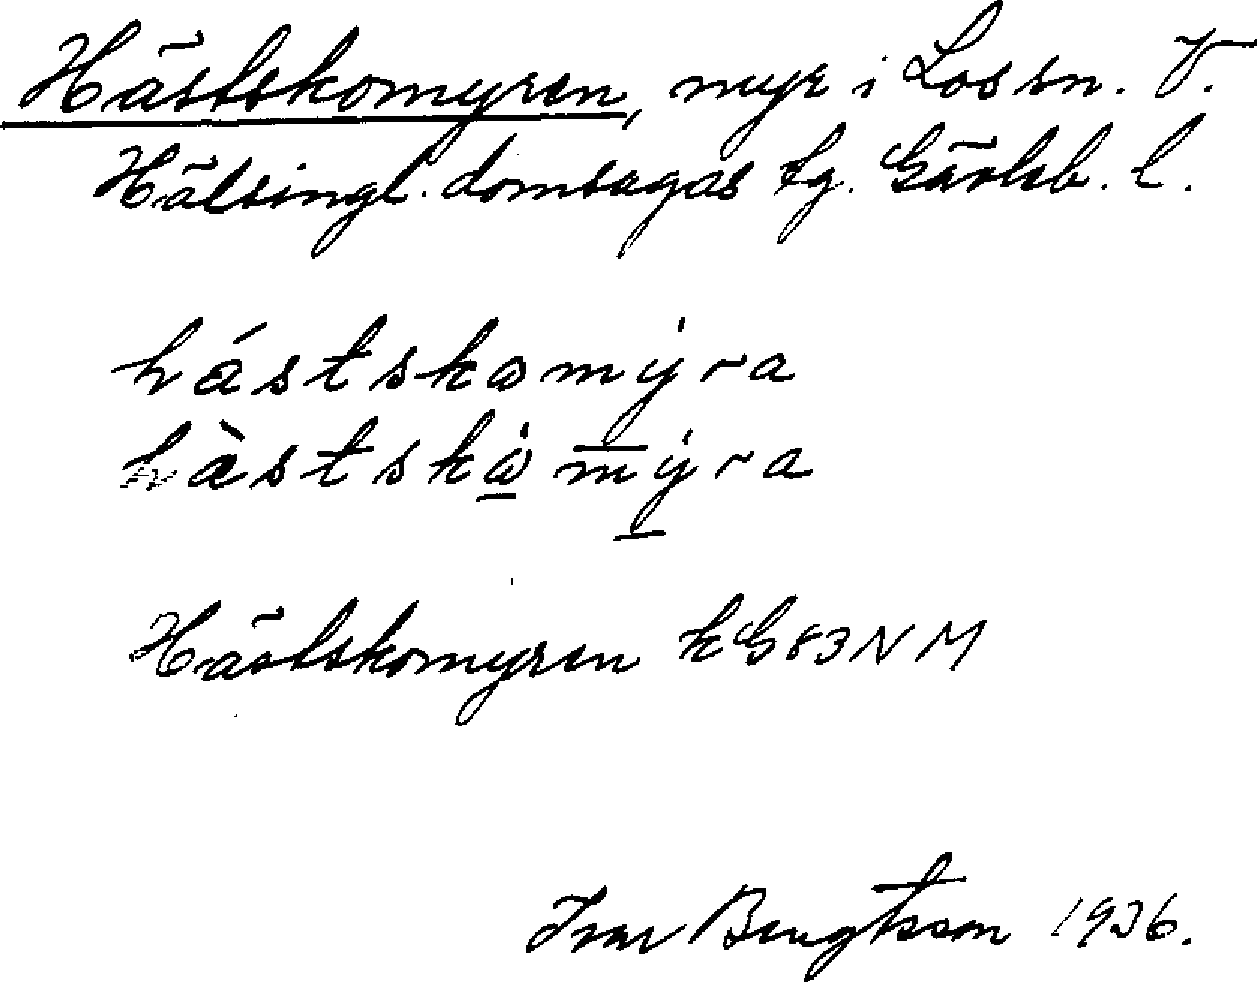 Hästskomyren, myr i Los sn. V.
Hälsingl. domsagas tg. Gävleb. l.
hástskomýra
hàstskòmýra
Hästskomyren kG83NM
Ivar Bengtsson 1936.